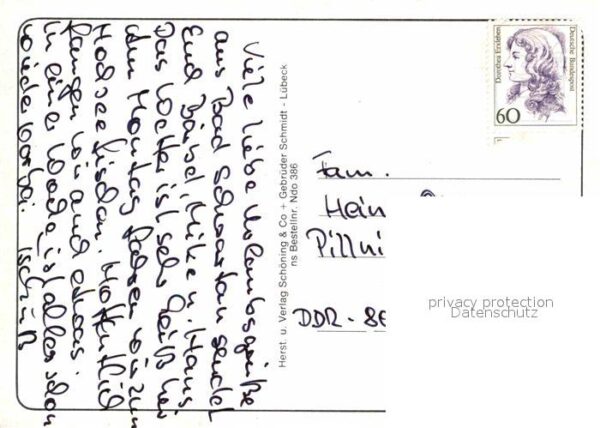 Viele liebe Urlaubsgrüße
aus Bad Schwartau sendet
Euch Bärbel, Mike u. Hans
Das Wetter ist sehr heiß hier
Am Montag fahren wir zum
Hochseefischen. Hoffentlich
fangen wir auch etwas.
In einer Woche ist alles schon
wieder vorbei. Tschüß
Herst. u. Verlag Schöning & Co + Gebrüder Schmidt - Lübeck
ns Bestellnr. Ndo 386
Dorothea Erxleben
Deutsche Bundespost
60
Fam.
Hein
Pillni
DDR - 80
privacy protection
Datenschutz